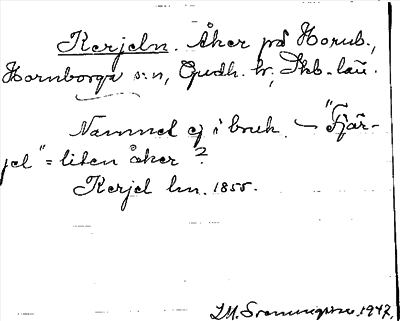 Kerjeln. Åker på Hornb.,
Hornborga s:n, Gudh. hr, Skb. län.
Namnet ej i bruk. – "Fjär-
jel" = liten åker?
Kerjel lm. 1855.
1947.